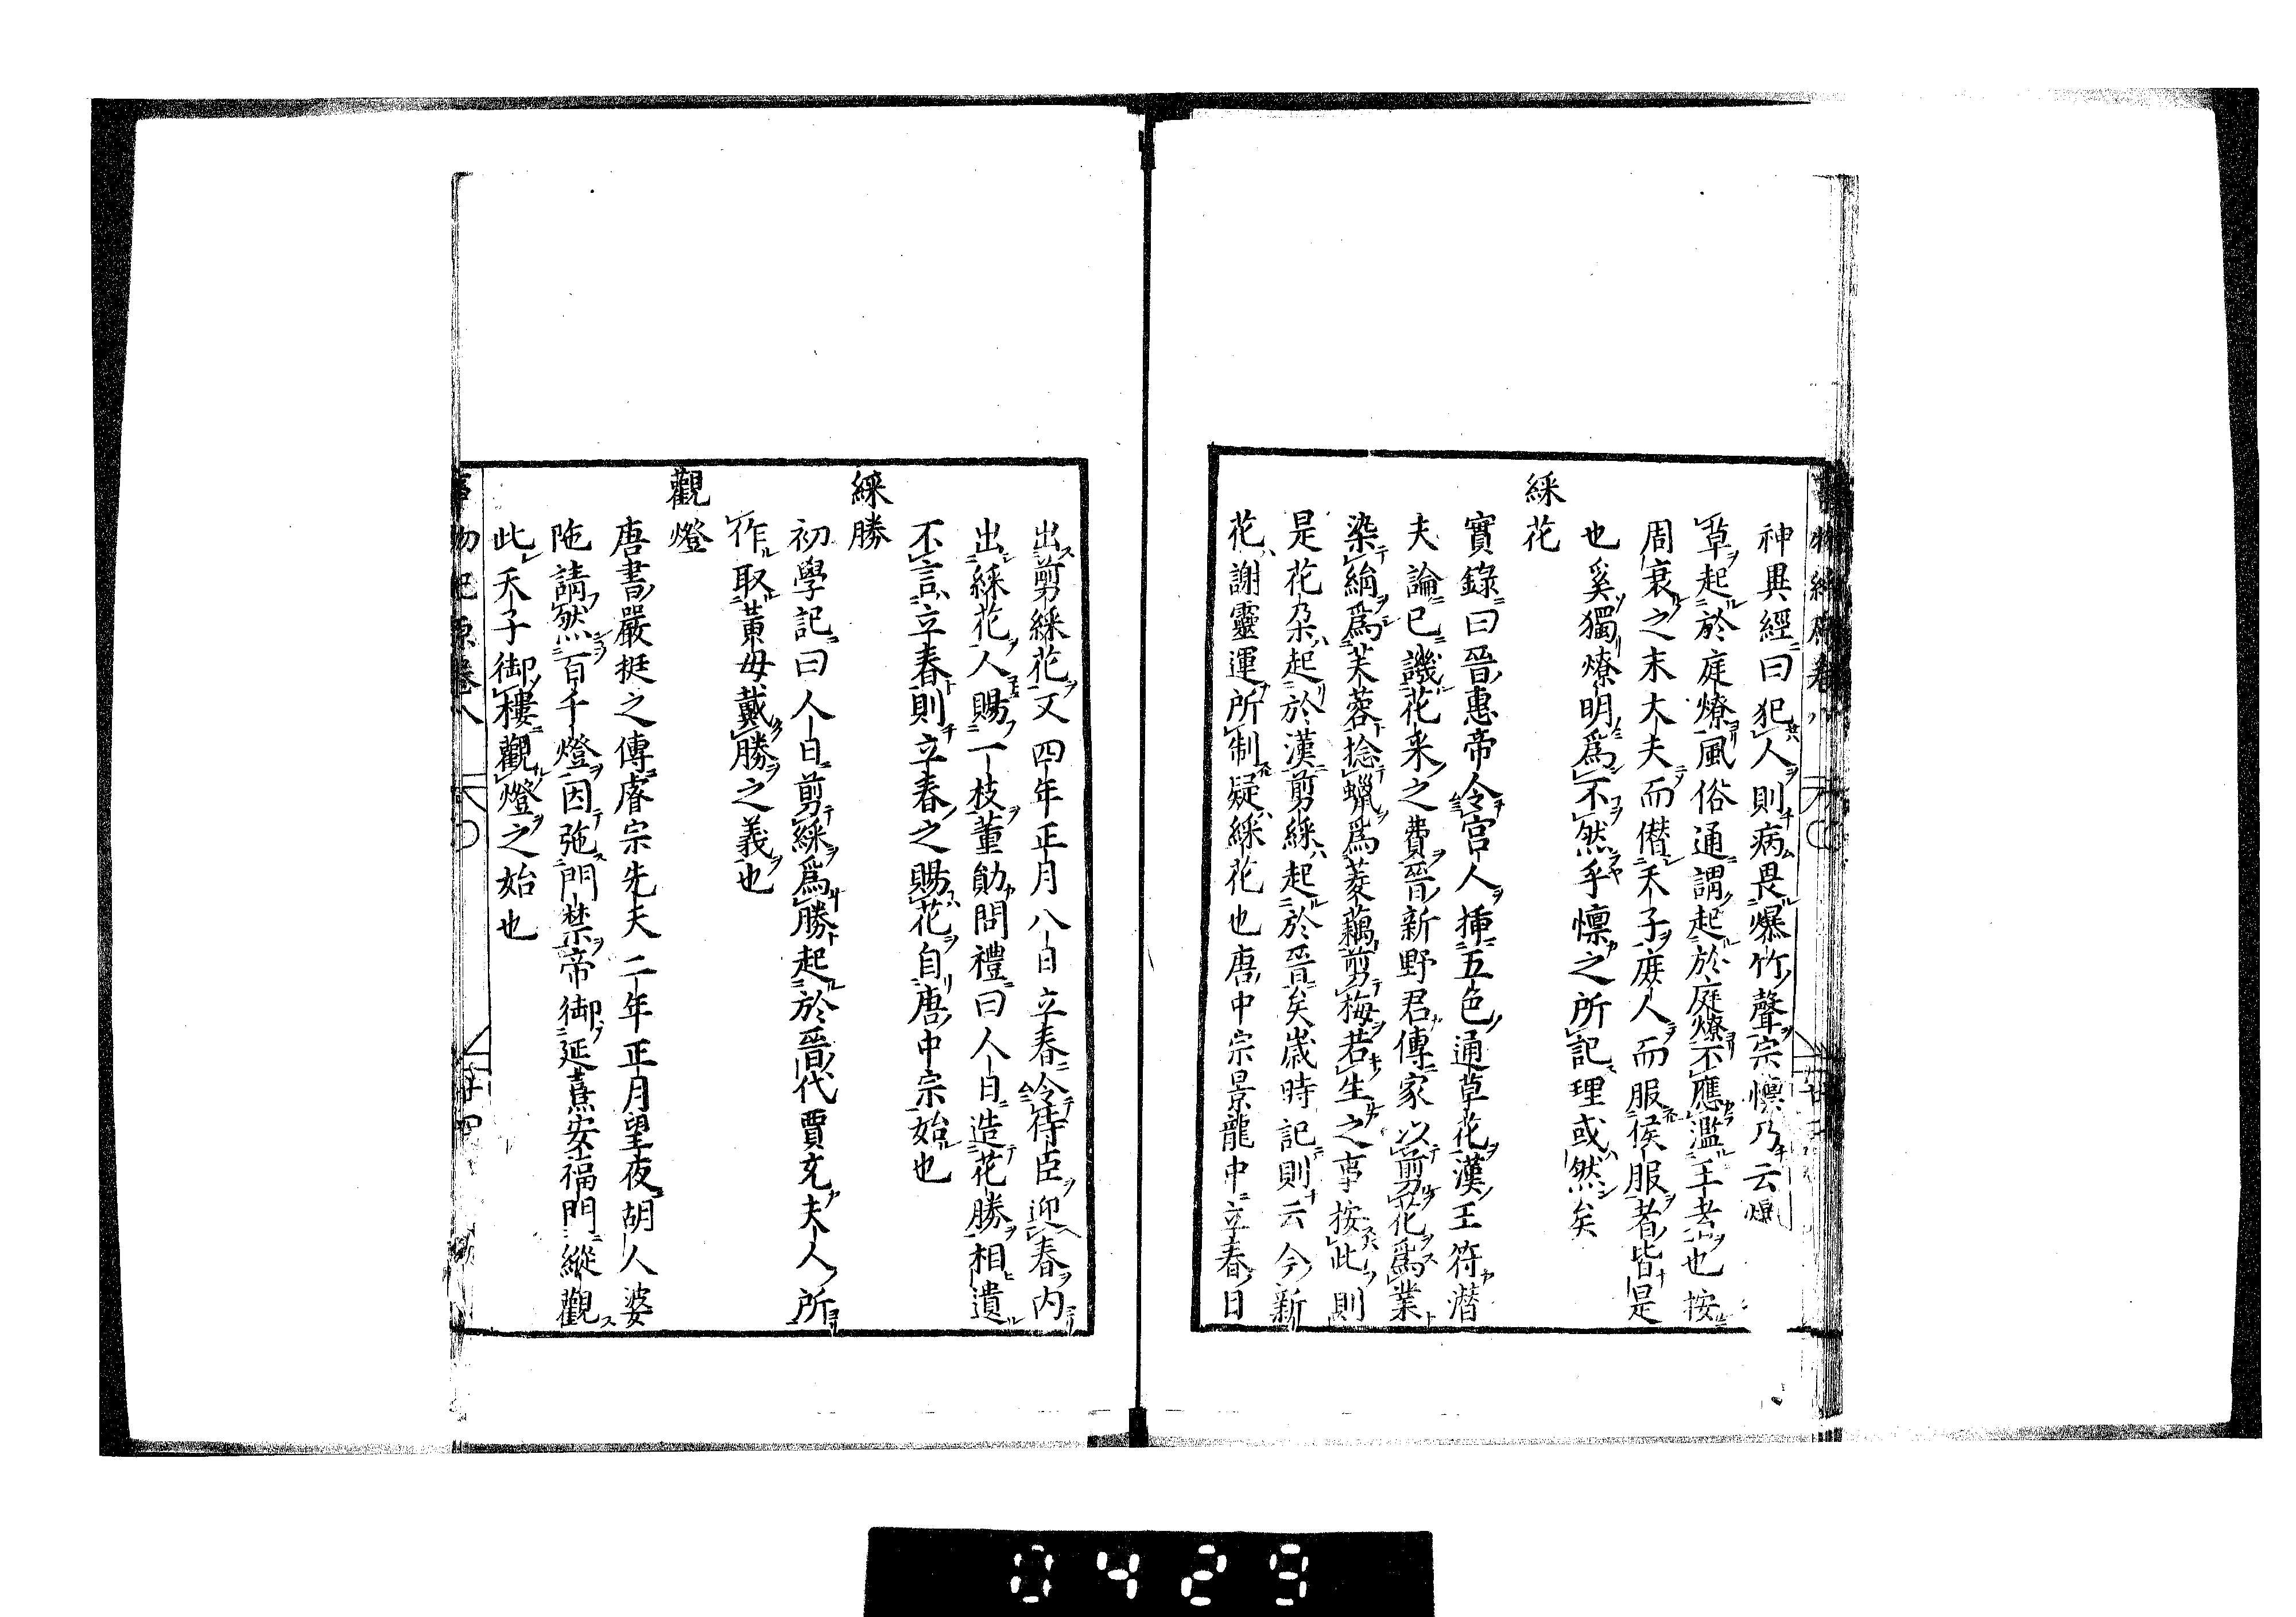 神異經曰犯人則病畏爆竹聲宗懍乃云爆
草起於庭燎風俗通謂起於庭燎不應濫王者也按
周衰之末大夫而僣天子庭人而服侯服者皆是
也奚獨燎明爲不然乎懍之所記理或然矣
綵花
實錄曰晉惠帝令宮人挿五色通草花漢王符潛
夫論已譏花采之費晉新野君傳家以剪花爲業
染絹爲芙蓉捻蠟爲菱藕剪梅若生之事按此則
是花朶起於漢剪綵起於晉矣歲時記則云今新
花謝靈運所制疑綵花也唐中宗景龍中立春日
出剪綵花又四年正月八日立春令侍臣迎春内
出綵花人賜一枝董勛問禮曰人日造花勝相遺
不言立春則立春之賜花自唐中宗始也
綵勝
初學記曰人日剪綵爲勝起於晉代賈充夫人所
作取黄母戴勝之義也
觀燈
唐書嚴挺之傳睿宗先天二年正月望夜胡人婆
陁請然百千燈因弛門禁帝御延熹安福門縱觀
此天子御樓觀燈之始也
事物紀原卷八
廿四
0429